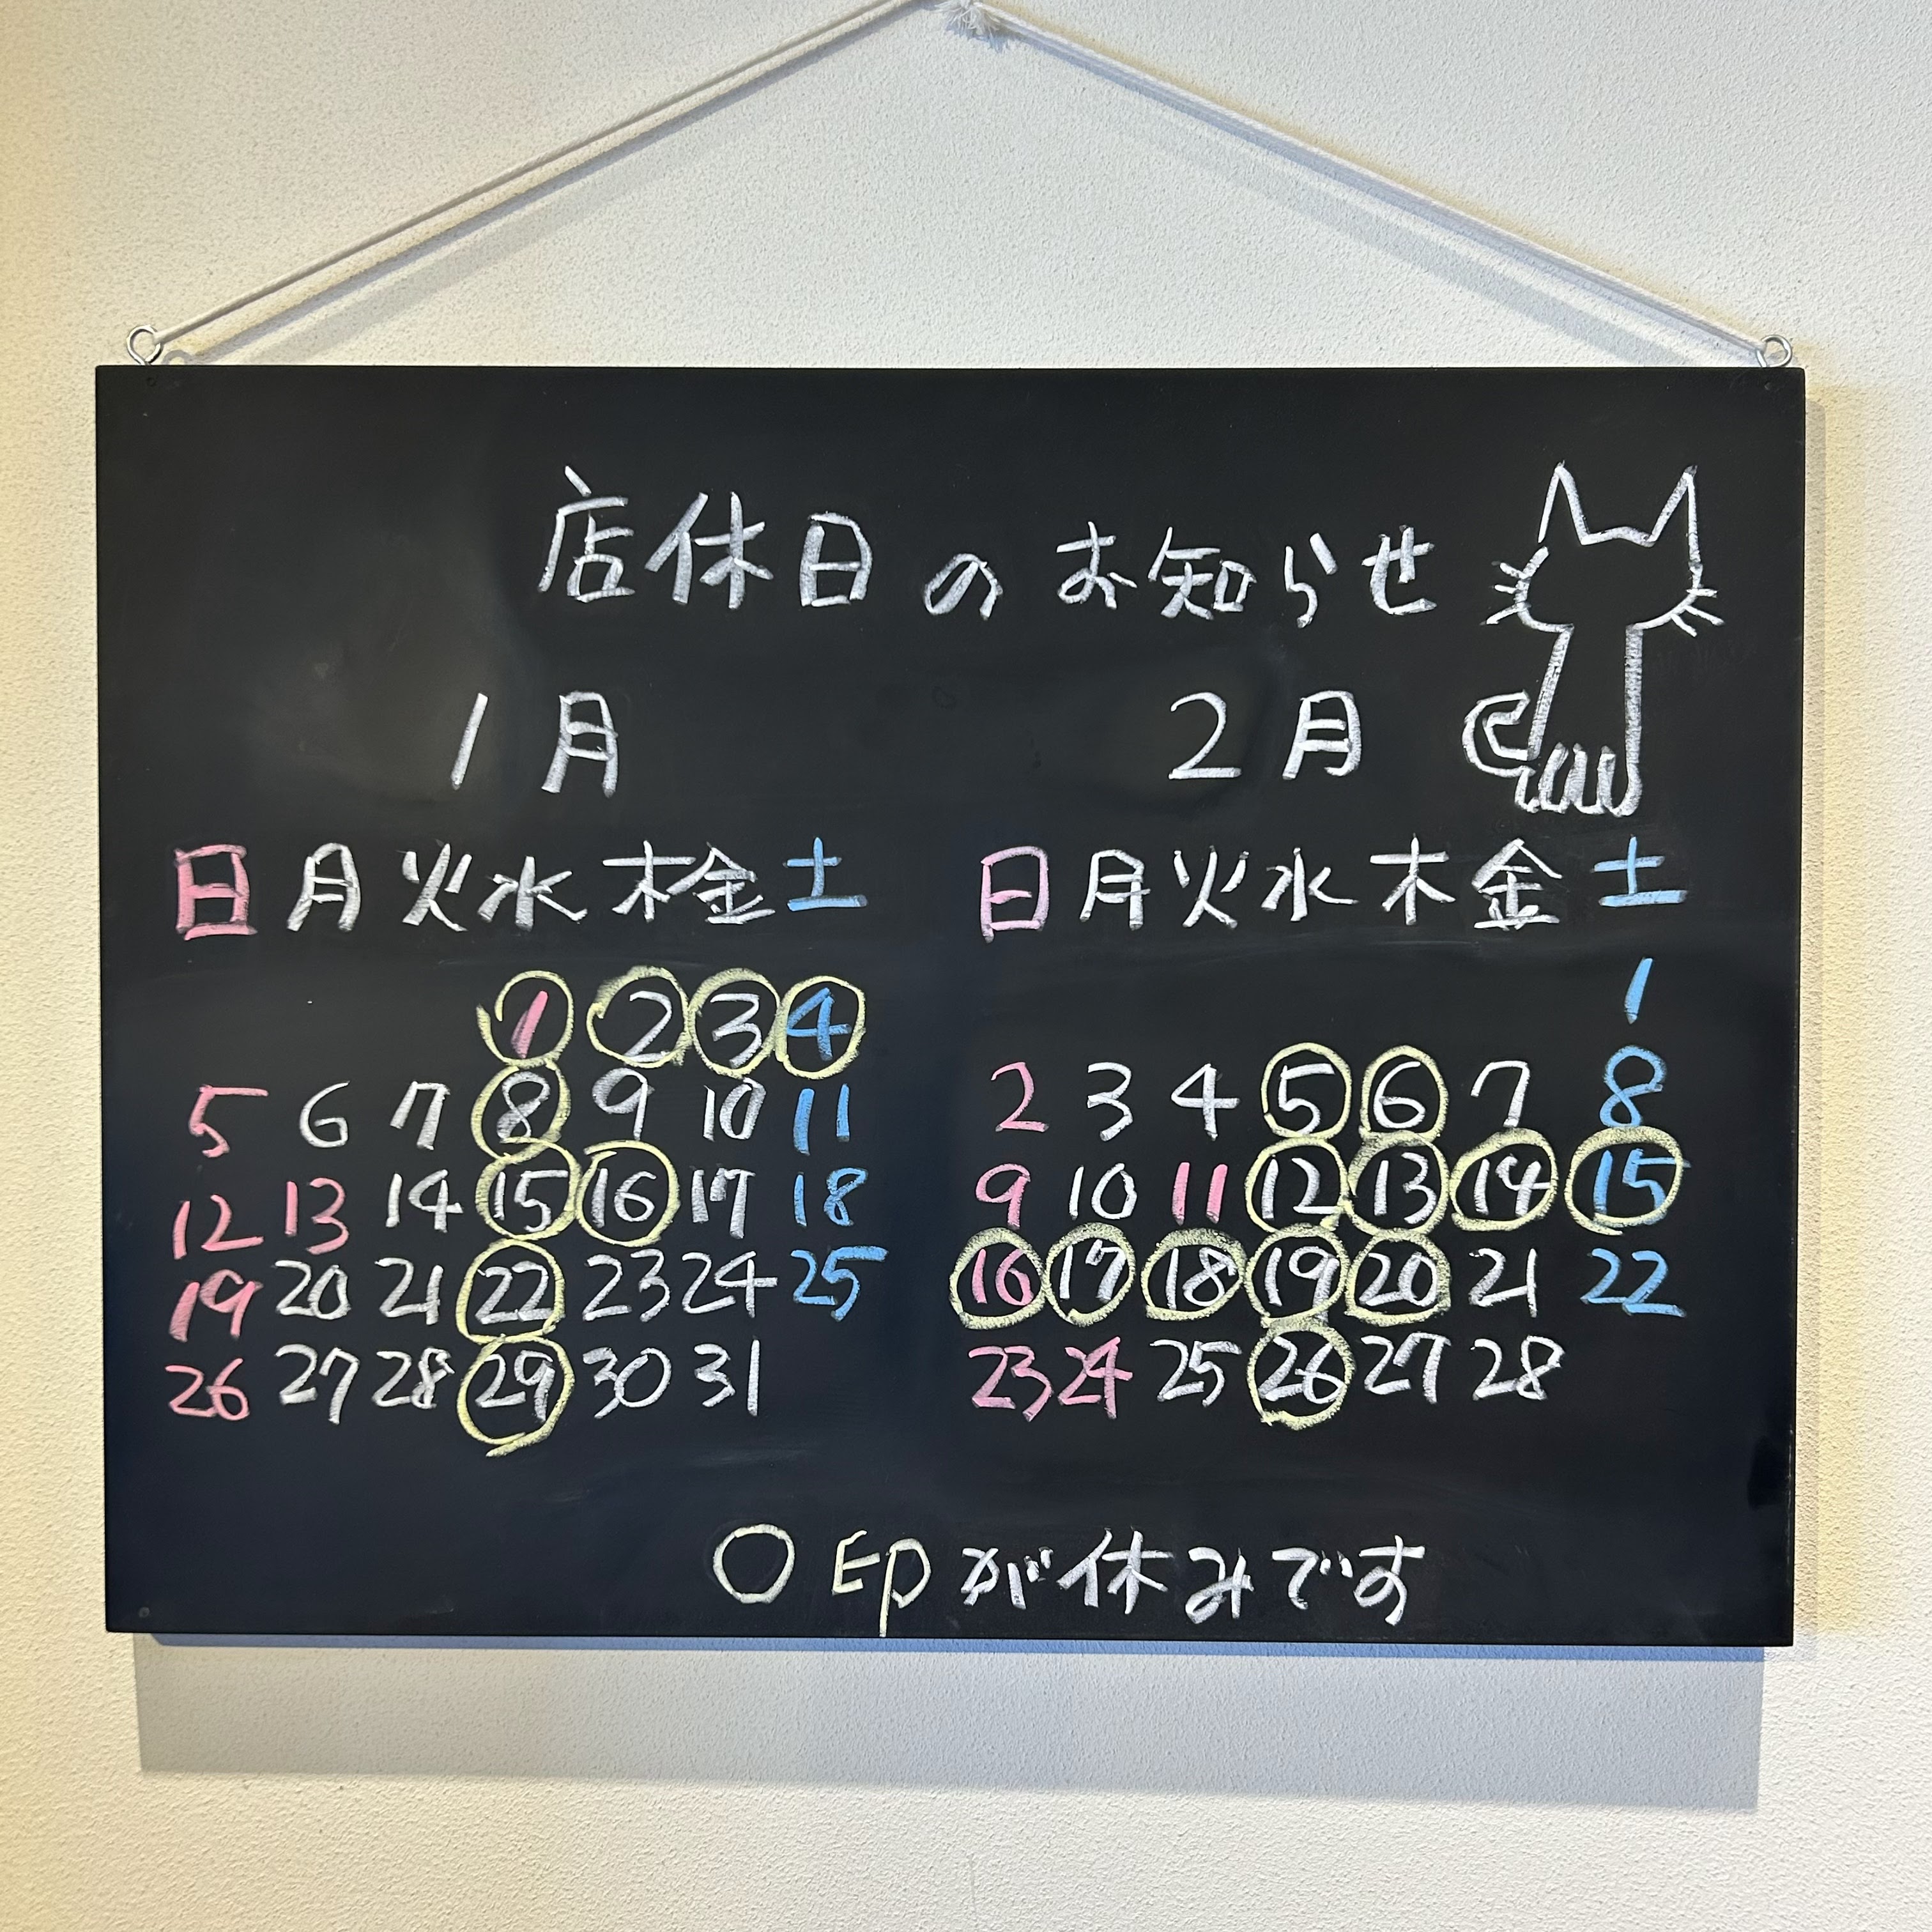 店休日のお知らせ
1月
日 月 火 水 木 金 土
1 2 3 4
5 6 7 8 9 10 11
12 13 14 15 16 17 18
19 20 21 22 23 24 25
26 27 28 29 30 31
2月
日 月 火 水 木 金 土
1
2 3 4 5 6 7 8
9 10 11 12 13 14 15
16 17 18 19 20 21 22
23 24 25 26 27 28
○印が休みです